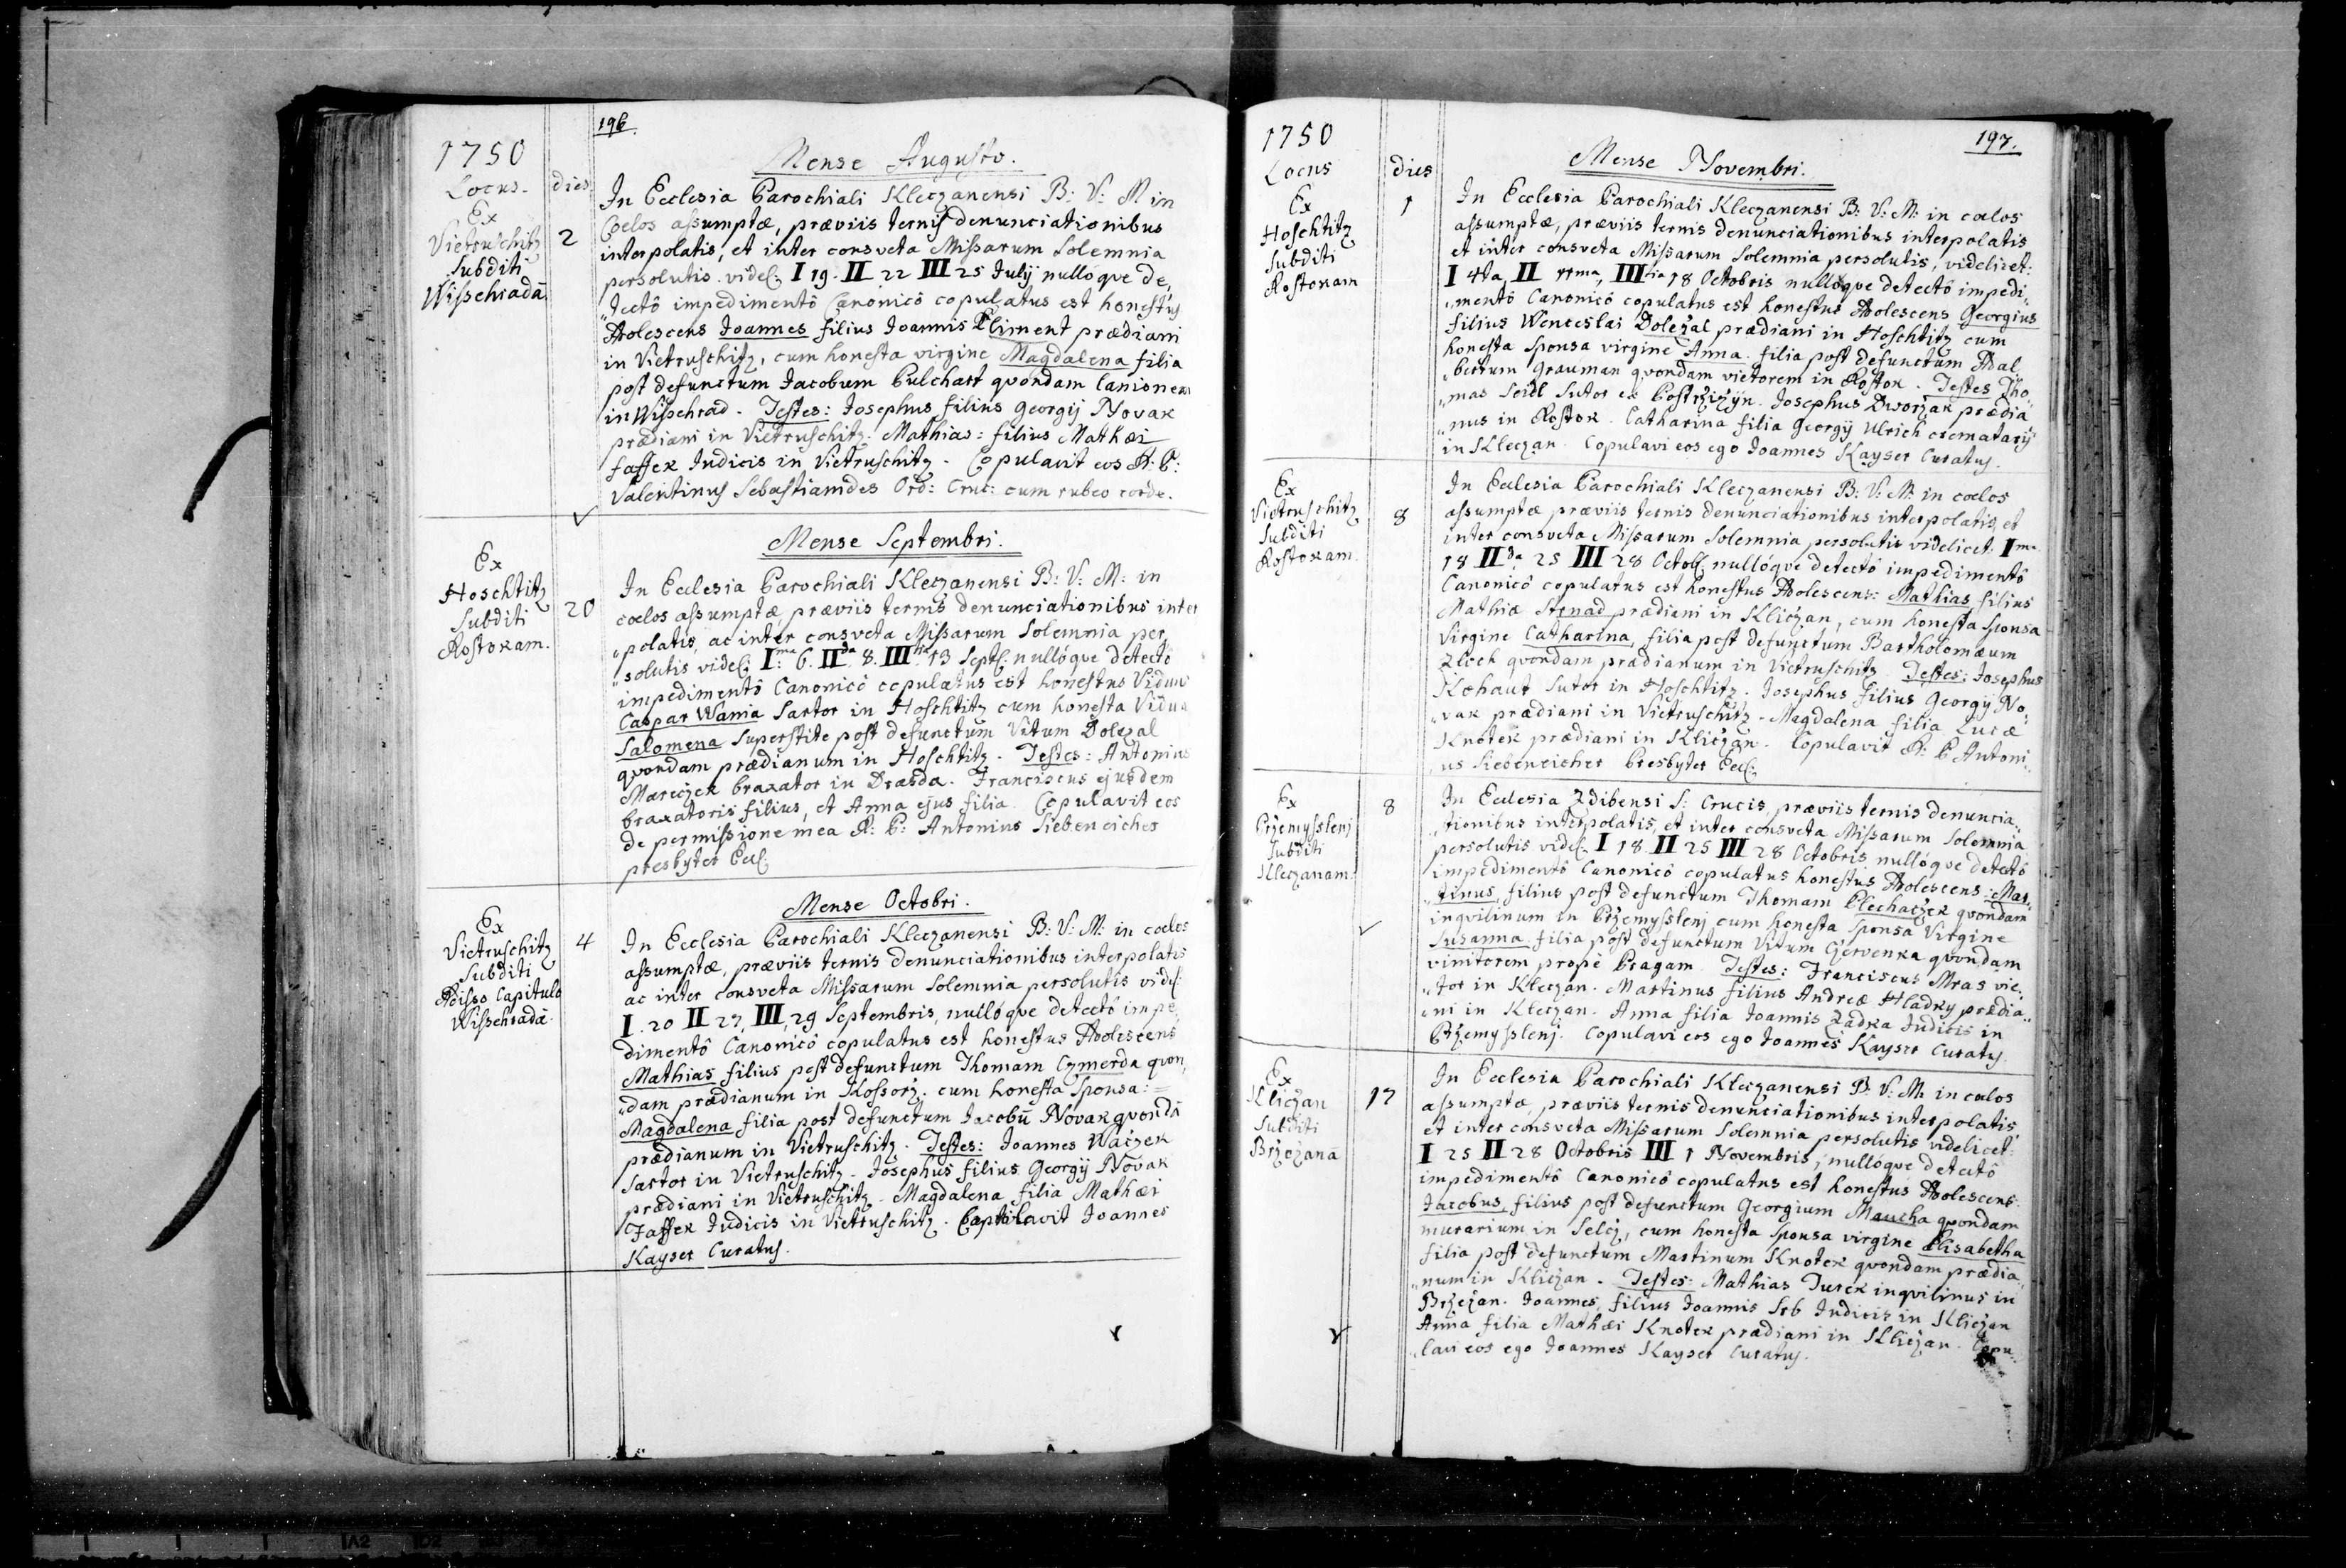 196.
1750
Locus.
dies
Mense Augusto.
Ex
Vietruschitz
Subditi
Wissehradā
2
In Ecclesia Parochiali Kleczanensi B: V: M in
Coelos assumptæ, præviis ternis denunciationibus
interpolatis, et inter consveta Missarum Solemnia
persolutis. videl: I 19. II 22 III 25 Julij nullóqve de,
„tectô impedimentô Canonicô copulatus est honestus
Adolescens Joannes filius Joannis Kliment prædiani
in Vietruschitz, cum honesta virgine Magdalena filia
post defunctum Jacobum Pulchart qvondam lanionem
in Wissehrad. Testes: Josephus filius Georgij Novak
prædiani in Vietruschitz. Mathias: filius Mathæi
Jaffek Judicis in Vietruschitz. Copulavit eos R: P:
Valentinus Sebastianides Ord: Cruc: cum rubeo corde.
Mense Septembri.
Ex
Hoschtitz
Subditi
Rostokam.
20
In Ecclesia Parochiali Kleczanensi B: V: M: in
coelos assumptæ, præviis ternis denunciationibus inter
„polatis, ac inter consveta Missarum Solemnia per,
„solutis videl: Ima: 6. IIda 8. IIItia 13 Sept: nullóqve detectô
impedimentô Canonicô copulatus est honestus Viduus
Caspar Wania Sartor in Hoschtitz cum honesta Vidua
Salomena Superstite post defunctum Vitum Dolezal
qvondam prædianum in Hoschtitz. Testes: Antonius
Mareczek braxator in Drasda. Franciscus ejusdem
braxatoris filius, et Anna ejus filia. Copulavit eos
de permissione mea R: P: Antonius Siebeneicher
presbyter Eccl:
Mense Octobri.
Ex
Vietruschitz
Subditi
Adisso Capitulo
Wissehradā.
4
In Ecclesia Parochiali Kleczanensi B: V: M: in coelos
assumptæ, præviis ternis denunciationibus interpolatis
ac inter consveta Missarum Solemnia persolutis videl:
I. 20 II 27, III, 29 Septembris, nullóqve detectô impe,
dimentô Canonicô copulatus est honestus Adolescens
Mathias filius post defunctum Thomam Czmerda qvon,
„dam prædianum in Kossorz. cum honesta Sponsa: =
Magdalena filia post defunctum Jacobū Novak qvondā
prædianum in Vietruschitz. Testes: Joannes Waczek
Sartor in Vietruschitz. Josephus filius Georgij Novak
prædiani in Vietruschitz. Magdalena filia Mathæi
Jaffek Judicis in Vietruschitz. Copulavit Joannes
Kayser Curatus.
197.
1750
Locus
dies
Mense Novembri.
Ex
Hoschtitz
Subditi
Rostokam
1
In Ecclesia Parochiali Kleczanensi B: V: M: in coelos
assumptæ, præviis ternis denunciationibus interpolatis
et inter consveta Missarum Solemnia persolutis, videlicet:
I 4ta, II 11ma, IIItia 18 Octobris nullóqve detectô impedi„
„mentô Canonicô copulatus est honestus Adolescens Georgius
filius Wenceslai Dolezal prædiani in Hoschtitz cum
honesta Sponsa virgine Anna filia post defunctum Adal„
„bertum Grauman qvondam vietorem in Rostok. Testes Tho„
„mas Seidl Sutor ex Postrzizyn. Josephus Dworzak prædia„
„nus in Rostok. Catharina filia Georgij Ulrich crematarij
in Kleczan. Copulavi eos ego Joannes Kayser Curatus.
Ex
Vietruschitz
Subditi
Rostokam.
8
In Ecclesia Parochiali Kleczanensi B: V: M: in coelos
assumptæ præviis ternis denunciationibus interpolatis, et
inter consveta Missarum Solemnia persolutis videlicet: Ima
18 IIda 25 III 28 Octob: nullóqve detectô impedimentô
Canonicô copulatus est honestus Adolescens: Mathias filius
Mathiæ Arnad prædiani in Kliczan, cum honesta Sponsa
Virgine Catharina, filia post defunctum Bartholomæum
Zloch qvondam prædianum in Vietruschitz Testes: Josephus
Kohaut Sutor in Hoschtitz. Josephus filius Georgij No„
„vak prædiani in Vietruschitz. Magdalena filia Lucæ
Knotek prædiani in Kliczan. Copulavit R: P Antoni„
us Siebeneicher Presbyter Eccl:
Ex
Przemysslenj
Subditi
Kleczanam
8
In Ecclesia Zdibensi S: Crucis, præviis ternis denuncia„
„tionibus interpolatis, et inter consveta Missarum Solemnia
persolutis videl: I 18 II 25 III 28 Octobris nullóqve detectô
impedimentô Canonicô copulatus honestus Adolescens: Mar„
„tinus filius post defunctum Thomam Plechaczek qvondam
inqvilinum in Przemysslenj cum honesta Sponsa Virgine
Susanna filia post defunctum Vitum Czervenka qvondam
vinitorem propè Pragam. Testes: Franciscus Mras vie„
„tor in Kleczan. Martinus filius Andreæ Hladky prædia„
„ni in Kleczan. Anna filia Joannis Zadka Judicis in
Przemysslenj. Copulavi eos ego Joannes Kayser Curatus.
Ex
Kliczan
Subditi
Brzezanā
17
In Ecclesia Parochiali Kleczanensi B: V: M: in coelos
assumptæ, præviis ternis denunciationibus interpolatis,
et inter consveta Missarum Solemnia persolutis videlicet:
I 25 II 28 Octobris III 1 Novembris, nullóqve detectô
impedimentô Canonicô copulatus est honestus Adolescens:
Jacobus, filius post defunctum Georgium Maucha qvondam
murarium in Selcz, cum honesta Sponsa virgine Elisabetha
filia post defunctum Martinum Knotek qvondam prædia„
„num in Kliczan. Testes: Mathias Turek inqvilinus in
Brzezan. Joannes, filius Joannis Srb Judicis in Kliczan
Anna filia Mathæi Knotek prædiani in Kliczan. Copu„
„lavi eos ego Joannes Kayser Curatus.